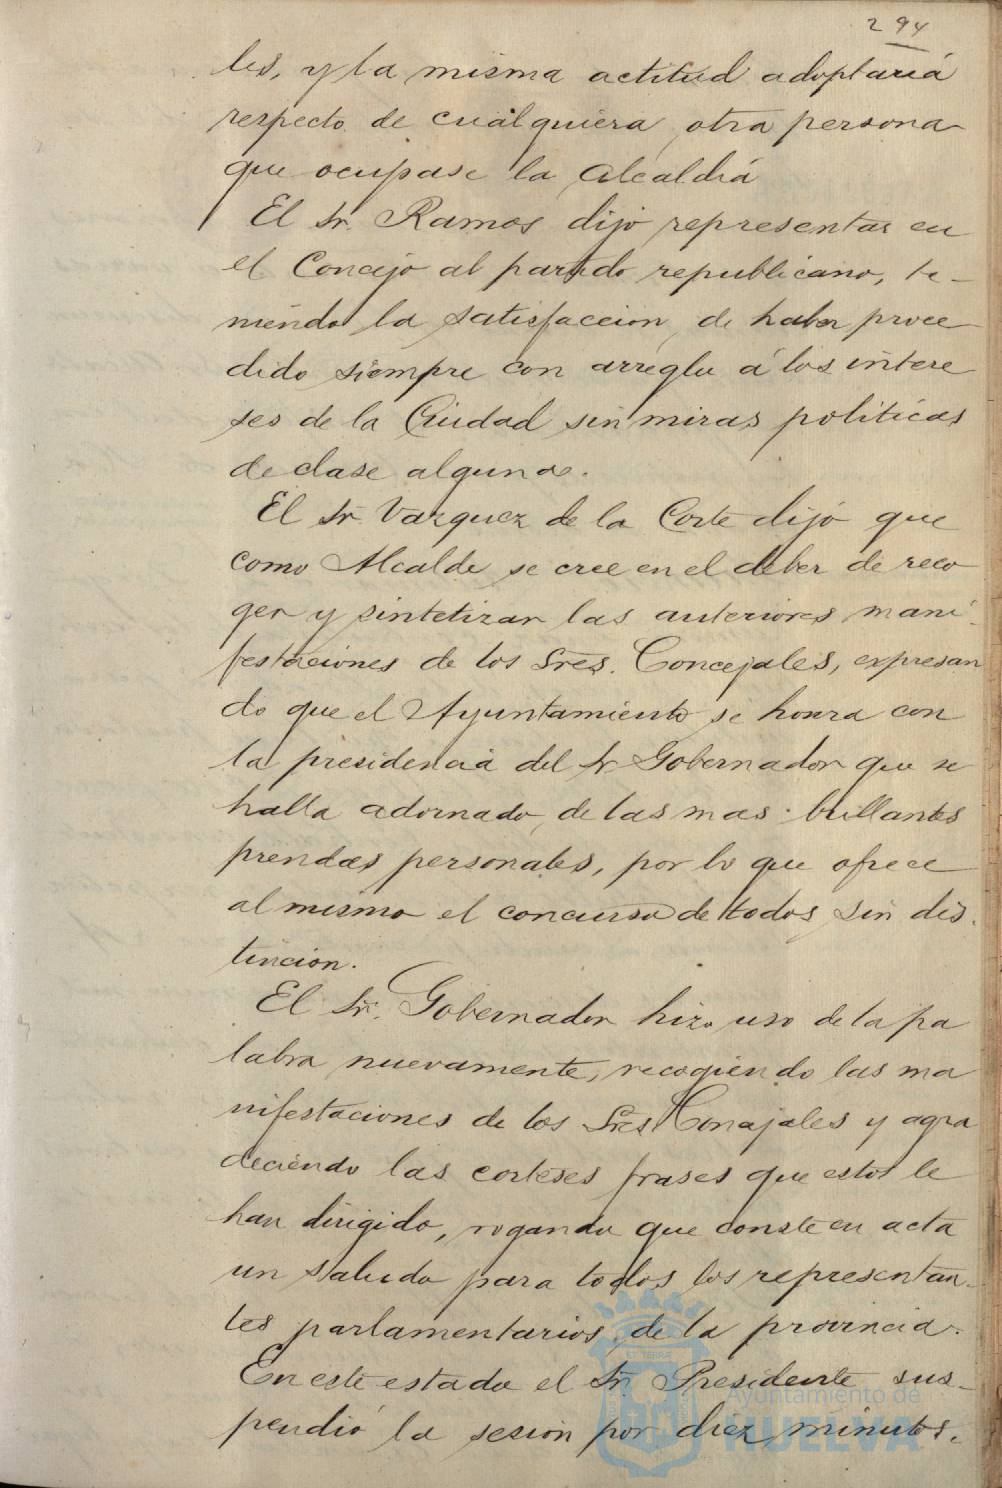 294
les, y la misma actitud adoptaría
respecto de cualquiera otra persona
que ocupase la Alcaldía
El Sr. Ramos dijo representar en
el Concejo al partido republicano, te-
niendo la satisfaccion de haber proce
dido siempre con arreglo á los intere
ses de la Ciudad sin miras politicas
de clase alguna.
El Sr. Vazquez de la Corte dijo que
como Alcalde se cree en el deber de reco
ger y sintetizar las anteriores mani-
festaciones de los Sres. Concejales, expresan
do que el Ayuntamiento se honra con
la presidencia del Sr Gobernador que se
halla adornado de las mas brillantes
prendas personales, por lo que ofrece
al mismo el concurso de todos sin dis-
tincion.
El Sr. Gobernador hizo uso de la pa
labra nuevamente, recogiendo las ma
nifestaciones de los Sres Concejales y agra
deciendo las corteses frases que estos le
han dirigido, rogando que conste en acta
un saludo para todos los representan-
tes parlamentarios de la provincia.
En este estado el Sr. Presidente sus-
pendió la sesion por diez minutos.
Ayuntamiento de
HUELVA